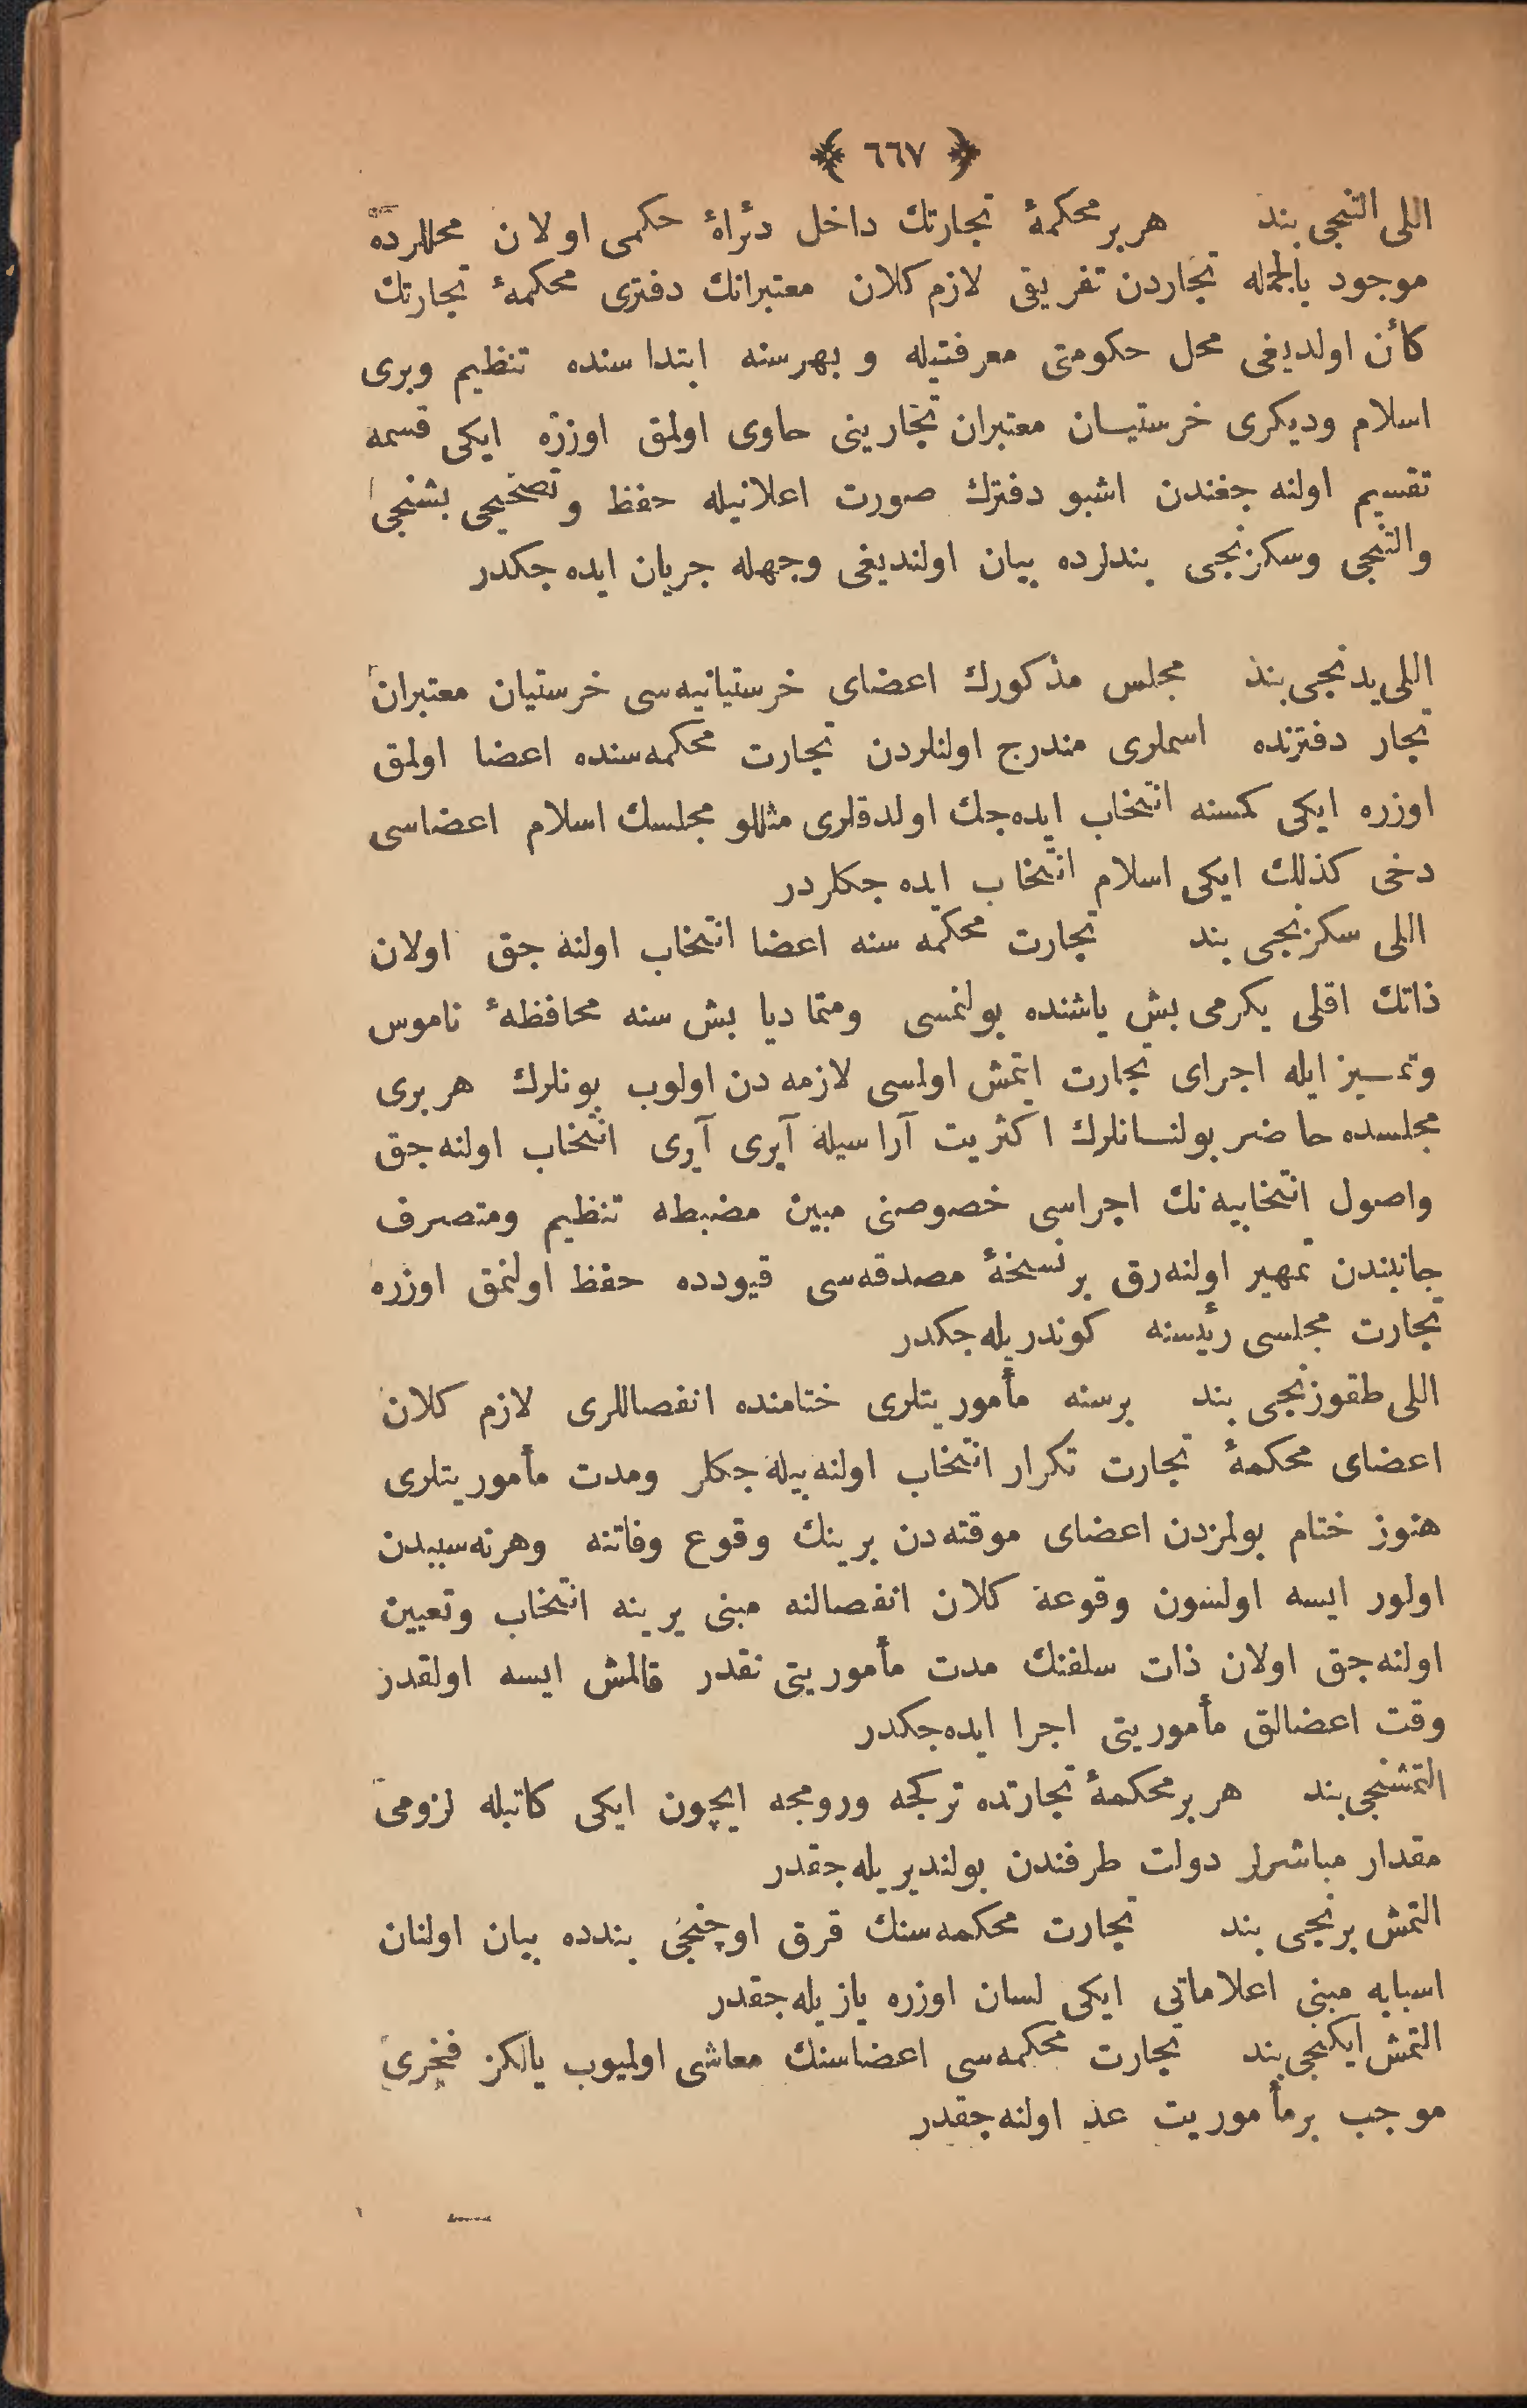 ﴿ ٦٦٧ ﴾
اللی التنجی بند هر بر محکمۀ تجارتك داخل دئراۀ حکمی اولان محللرده
موجود بالجمله تجاردن تفریقی لازم کلان معتبرانك دفتری محکمۀ تجارتك
كأن اولدیغی محل حکومتی معرفتیله و بهر سنه ابتداسنده تنظیم وبری
اسلام ودیکری خرستیان معتبران تجارینی حاوی اولمق اوزره ایکی قسمه
تقسیم اولنه جغندن اشبو دفترك صورت اعلانیله حفظ وتصحیحی بشنجی
والتنجی وسکزنجی بندلرده بیان اولندیغی وجهله جریان ایده جکدر
اللی یدنجی بند مجلس مذکورك اعضای خرستیانیه‌سی خرستیان معتبران
تجار دفترنده اسملری مندرج اولنلردن تجارت محکمه‌سنده اعضا اولمق
اوزره ایکی کمسنه انتخاب ایده‌جك اولدقلری مثللو مجلسك اسلام اعضاسی
دخی کذلك ایکی اسلام انتخاب ایده جکلردر
اللی سکزنجی بند تجارت محکمه سنه اعضا انتخاب اولنه جق اولان
ذاتك اقلی یکرمی بش یاشنده بولنمسی ومتمادیا بش سنه محافظۀ ناموس
وتمییز ایله اجرای تجارت ایتمش اولسی لازمه دن اولوب بونلرك هر بری
مجلسده حاضر بولنانلرك اکثریت آراسیله آیری آیری انتخاب اولنه جق
واصول انتخابیه نك اجراسی خصوصنی مبین مضبطه تنظیم ومتصرف
جانبندن تمهیر اولنه‌رق بر نسخۀ مصدقه‌سی قیودده حفظ اولنمق اوزره
تجارت مجلسی رئیسنه کوندریله جکدر
اللی طقوزنجی بند بر سنه مأموریتلری ختامنده انفصاللری لازم کلان
اعضای محکمۀ تجارت تکرار انتخاب اولنه‌بیله جکلر ومدت مأموریتلری
هنوز ختام بولمزدن اعضای موقته‌دن برینك وقوع وفاتنه وهر نه سببدن
اولور ایسه اولسون وقوعه کلان انفصالنه مبنی یرینه انتخاب وتعیین
اولنه‌جق اولان ذات سلفنك مدت مأموریتی نقدر قالمش ایسه اولقدر
وقت اعضالق مأموریتی اجرا ایده‌جکدر
التمشنجی بند هر بر محکمۀ تجارتده ترکجه ورومجه ایچون ایکی کاتبله لزومی
مقدار مباشرلر دولت طرفندن بولندیریله جقدر
التمش برنجی بند تجارت محکمه‌سنك قرق اوچنجی بندده بیان اولنان
اسبابه مبنی اعلاماتی ایکی لسان اوزره یازیله جقدر
التمش ایکنجی بند تجارت محکمه‌سی اعضاسنك معاشی اولمیوب یالکز فخری
موجب بر مأموریت عد اولنه جقدر